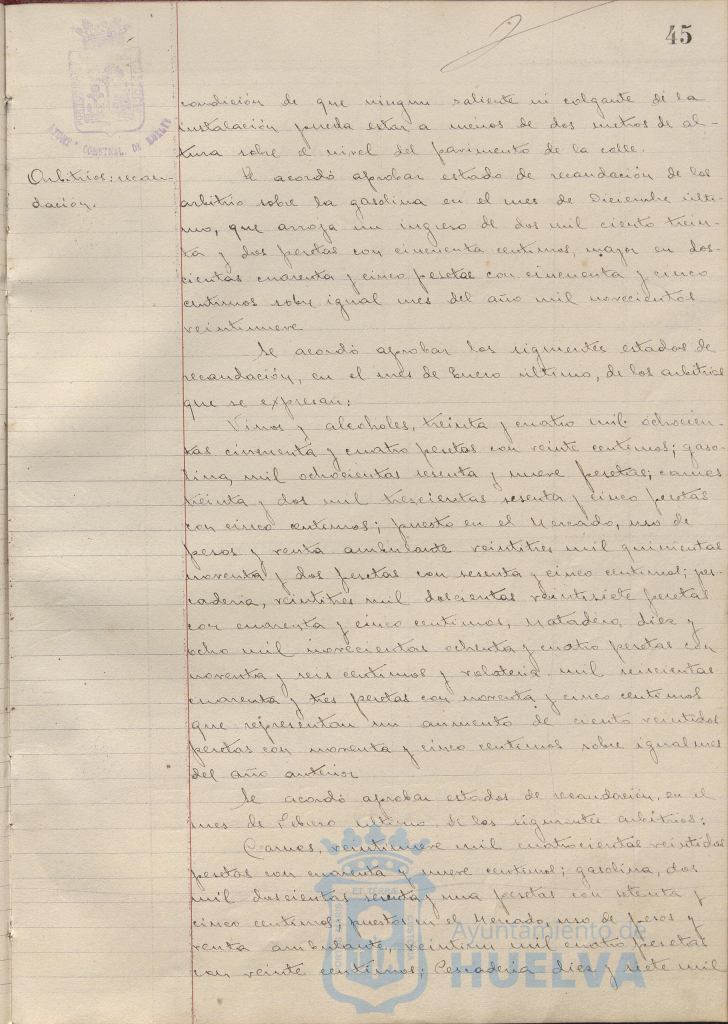 45
condición de que ningun saliente ni colgante de la
instalación pueda estar a menos de dos metros de al-
tura sobre el nivel del pavimento de la calle.
Arbitrios: recau-
dación.
Se acordó aprobar estado de recaudación de los
arbitrio sobre la gasolina en el mes de Diciembre últi-
mo, que arroja un ingreso de dos mil ciento trein-
ta y dos pesetas con cincuenta centimos, mayor en dos-
cientas cuarenta y cinco pesetas con cincuenta y cinco
centimos sobre igual mes del año mil novecientos
veintinueve
Se acordó aprobar los siguientes estados de
recaudación, en el mes de Enero último, de los arbitrios
que se expresan:
Vinos y alcoholes, treinta y cuatro mil ochocien-
tas cincuenta y cuatro pesetas con veinte centimos; gaso-
lina, mil ochocientas sesenta y nueve pesetas; carnes
treinta y dos mil trescientas sesenta y cinco pesetas
con cinco centimos; puesto en el Mercado, uso de
pesos y venta ambulante veintitres mil quinientas
noventa y dos pesetas con sesenta y cinco centimos; pes-
caderia, veintitres mil doscientas veintisiete pesetas
con cuarenta y cinco centimos, Matadero, diez y
ocho mil novecientas ochenta y cuatro pesetas con
noventa y seis centimos y volateria mil seiscientas
cuarenta y tres pesetas con noventa y cinco centimos
que representan un aumento de ciento veintidos
pesetas con noventa y cinco centimos sobre igual mes
del año anterior
Se acordó aprobar estados de recaudación, en el
mes de Febrero último, de los siguientes arbitrios:
Carnes, veintinueve mil cuatrocientas veintidos
pesetas con cuarenta y nueve centimos; gasolina, dos
mil doscientas sesenta y una pesetas con setenta y
cinco centimos; puestos en el Mercado, uso de pesos y
venta ambulante, veintiun mil cuatro pesetas
con veinte centimos; Pescaderia diez y siete mil
Ayuntamiento de
HUELVA